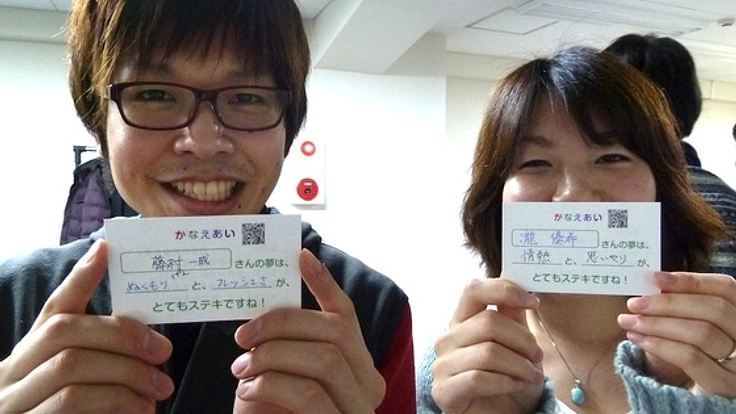 かなえあい
藤村 一成
さんの夢は、
ぬくもり と、フレッシュさ が、
とてもステキですね！
かなえあい
瀧 優希
さんの夢は、
情熱 と、思いやり が、
とてもステキですね！